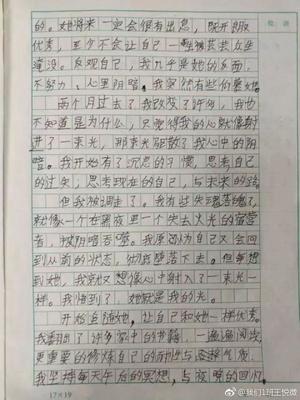 的。她将来一定会很有出息，既开朗
优秀，至少不会让自己一
淹没。反观自己，我几乎是她的反面，
不努力，心里阴暗。我突然有些仰慕她。
两个月过去了我改变了许多，我也
不知道是为什么，只觉得我的心就像射
进了一束光，那束光驱散了我心中的阴
暗。我开始有了沉思的习惯，思考自己
的过失，思考现在的自己，与未来的路。
但我被调走了。我有些失魂落魄了，
就像一个在黑夜里一个失去火光的
者，被阴暗吞噬。我原以为自己又会回
到从前的状态，彻底堕落下去。但每想
到她，我就又想像心中射入了一束光一
样。我悟到了，她就是我的光。
开始追随她，让自己和她一样优秀。
我翻出了许多家中的书籍，一遍遍阅读，
更重要的修炼自己的耐性与
我坚持每天午后的冥想，与夜晚的回忆，
17×19
@我们1班王悦微